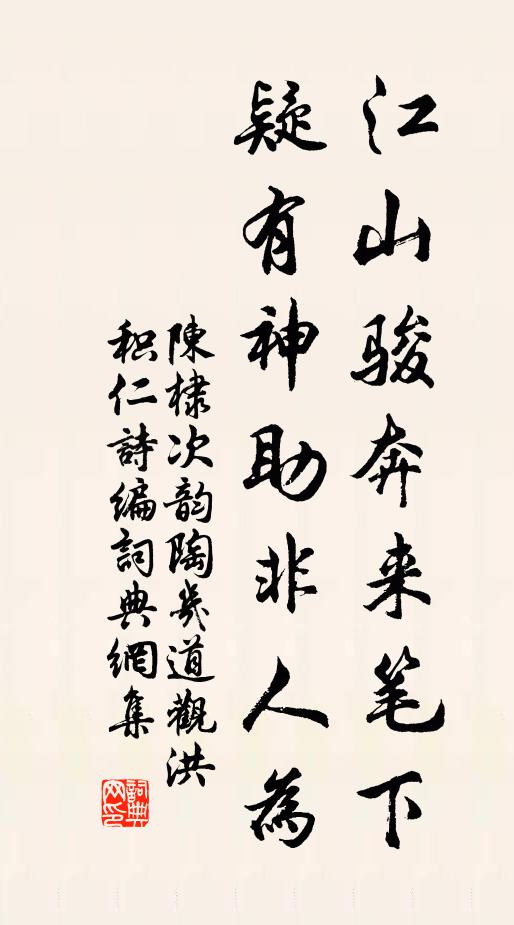 江山骏奔来笔下
疑有神助非人為
陳棣次韵陶幾道觀洪
积仁詩编詞典網集
詞典网印